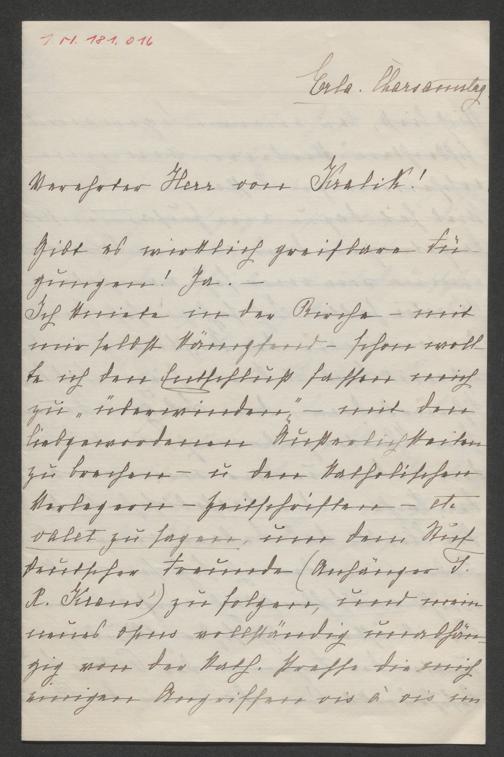 I. N. 181.016
Erla. Charsamstag
Verehrter Herr von Kralik!
Gibt es wirklich greifbare Fü-
gungen! Ja. —
Ich kniete in der Kirche – mit
mir selbst kämpfend – schon woll
te ich den Entschluß fassen mich
zu „überwinden" – mit den
liebgewordenen Äußerlichkeiten
zu brechen – u den katholischen
Verlegern – Zeitschriften – etc.
valet zu sagen, um dem Ruf
deutscher Freunde (Anhänger
R. Kraus') zu folgen, und mein
neues opus vollständig unabhän-
gig von der kath. Presse die mich
einigen Angriffen vis à vis im